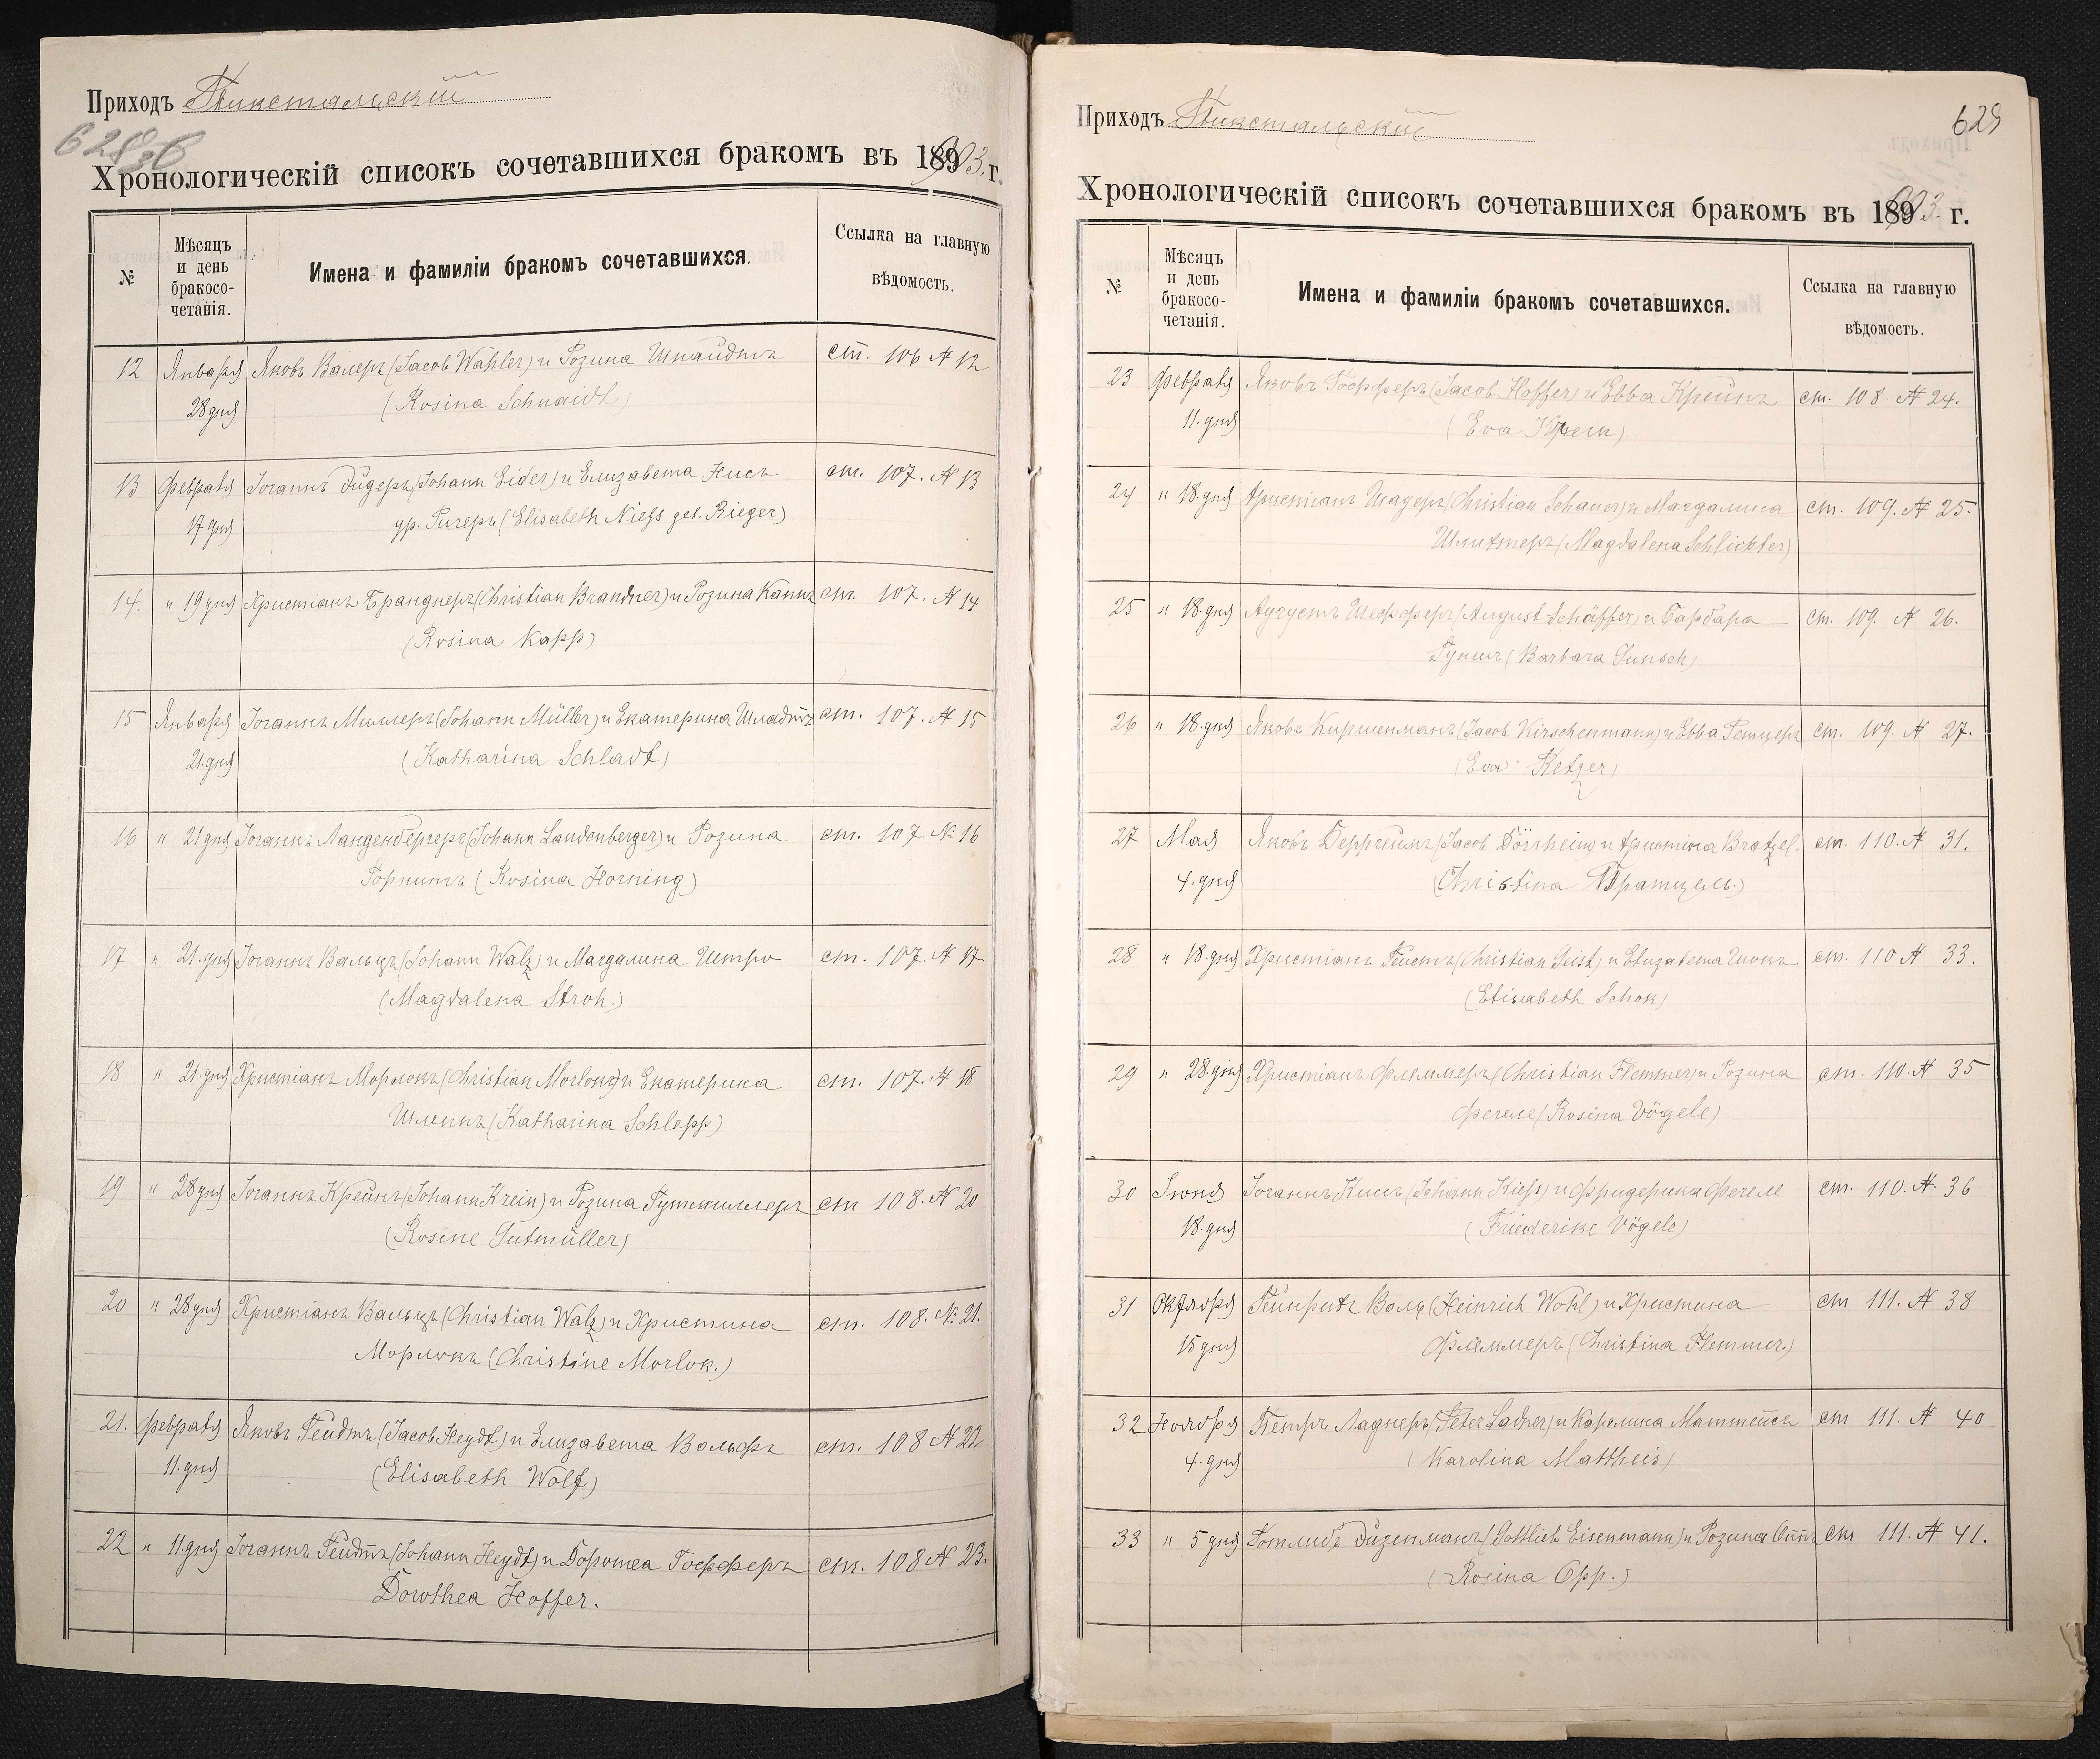 Приходъ Глюкстальскій
628 об
Хронологическій списокъ сочетавшихся бракомъ въ 1903 г.
№ Мѣсяцъ и день бракосо-четанія. Имена и фамиліи бракомъ сочетавшихся. Ссылка на главную вѣдомость.
12 Января Яковъ Валеръ (Jacob Wahler) и Розина Шнайдтъ ст. 106 № 12
28 дня (Rosina Schnaidt)
13 Февраля Іоганнъ Эйдеръ (Johann Eider) и Елизавета Нисъ ст. 107. № 13
17 дня ур. Ригеръ (Elisabeth Niess geb. Rieger)
14. " 19 дня Христіанъ Бранднеръ (Christian Brandner) и Розина Каппъ ст. 107. № 14
(Rosina Kapp)
15 Января Іоганнъ Миллеръ (Johann Müller) и Екатерина Шладтъ ст. 107. № 15
21. дня (Katharina Schladt)
16 " 21 дня Іоганнъ Ланденбергеръ (Johann Landenberger) и Розина ст. 107. № 16
Горнингъ (Rosina Horning)
17 " 21. дня Іоганнъ Вальцъ (Johann Walz) и Магдалина Штро ст. 107. № 17
(Magdalena Stroh.)
18 " 21. дня Христіанъ Морлокъ (Christian Morlok) и Екатерина ст. 107. № 18
Шлеппъ (Katharina Schlepp)
19 " 28 дня Іоганнъ Крейнъ (Johann Krein) и Розина Гутмиллеръ ст 108. № 20
(Rosine Gutmüller)
20 " 28 дня Христіанъ Вальцъ (Christian Walz) и Христина ст. 108. № 21.
Морлокъ (Christine Morlok.)
21. Февраля Яковъ Гейдтъ (Jacob Heydt) и Елизавета Вольфъ ст. 108 № 22
11. дня (Elisabeth Wolf)
22 " 11. дня Іоганнъ Гейдтъ (Johann Heydt) и Доротеа Гофферъ ст. 108 № 23.
Dorothea Hoffer.
Приходъ Глюкстальскій
629
Хронологическій списокъ сочетавшихся бракомъ въ 1903. г.
№ Мѣсяцъ и день бракосо-четанія. Имена и фамиліи бракомъ сочетавшихся. Ссылка на главную вѣдомость.
23 Февраля Яковъ Гофферъ (Jacob Hoffer) и Евва Крейнъ ст. 108 № 24.
11. дня (Eva Krein)
24 " 18. дня Христіанъ Шауеръ (Christian Schauer) и Магдалина ст. 109. № 25.
Шлихтеръ (Magdalena Schlichter)
25 " 18. дня Аугустъ Шефферъ (August Schäffer) и Барбара ст. 109. № 26.
Гуншъ (Barbara Gunsch)
26 " 18. дня Яковъ Киршенманъ (Jacob Kirschenmann) и Евва Ретцеръ ст. 109. № 27.
(Eva Retzer)
27 Мая Яковъ Дерргеймъ (Jacob Dörrheim) и Христина Bratzel. ст. 110. № 31.
4. дня (Christina Братцель.)
28 " 18. дня Христіанъ Гейстъ (Christian Geist) и Елизавета Шокъ ст. 110 № 33.
(Elisabeth Schok)
29 " 28. дня Христіанъ Флеммеръ (Christian Flemmer) и Розина ст. 110. № 35
Фегеле (Rosina Vögele)
30 Іюня Іоганнъ Кисъ (Johann Kiess) и Фридерика Фегеле ст. 110. № 36
18. дня (Friederike Vögele)
31 Октября Гейнрихъ Воль (Heinrich Wohl) и Христина ст 111. № 38
15 дня Флеммеръ (Christina Flemmer.)
32 Ноября Петръ Ладнеръ (Peter Ladner) и Каролина Маттейсъ ст 111. № 40
4. дня (Karolina Mattheis)
33 " 5 дня Готлибъ Эйзенманъ (Gottlieb Eisenmann) и Розина Оппъ ст 111. № 41.
(Rosina Opp.)